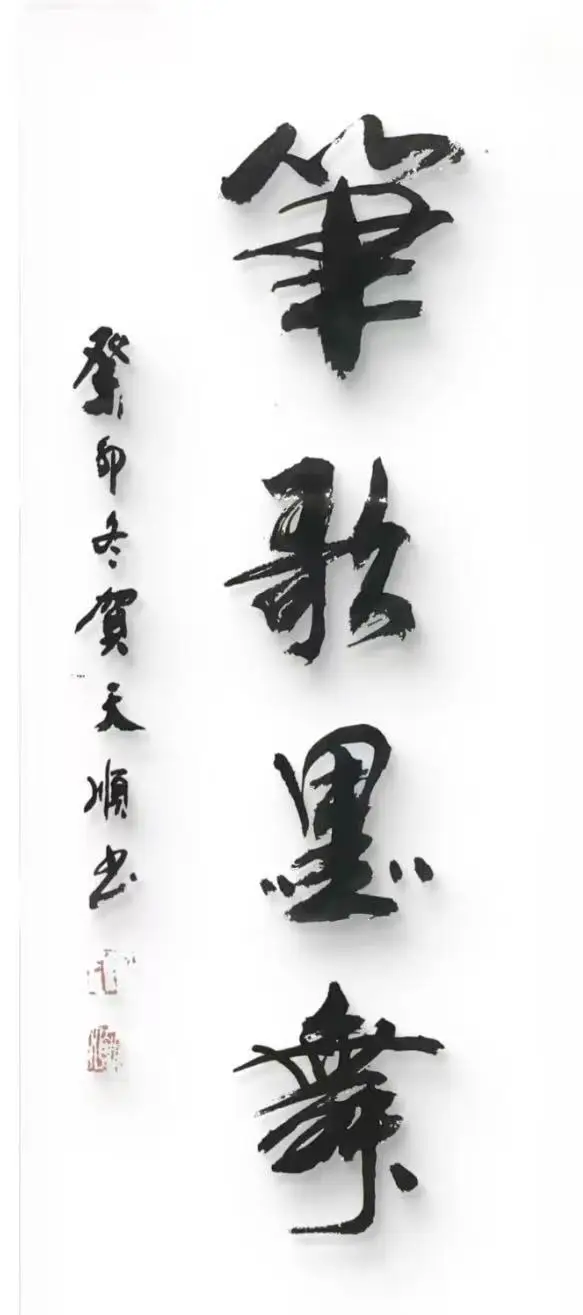 筆歌墨舞
癸卯冬賀天順书